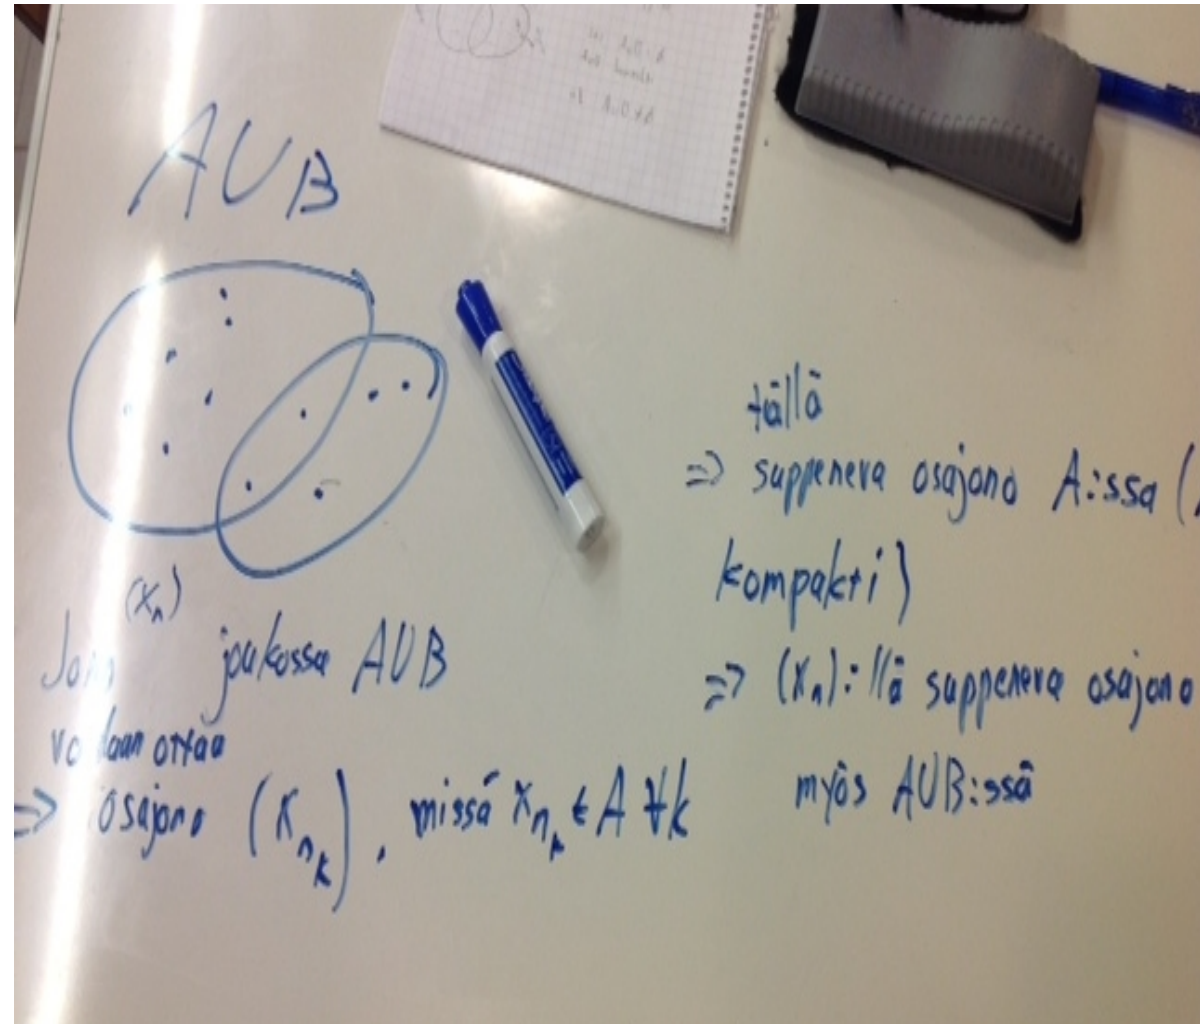 AUB
(xₙ)
Jono joukossa AUB
voidaan ottaa
=> osajono (xₙₖ), missä xₙₖ ∈ A ∀k
tällä
=> suppeneva osajono A:ssa (
kompakti)
=> (xₙ):llä suppeneva osajono
myös AUB:ssä